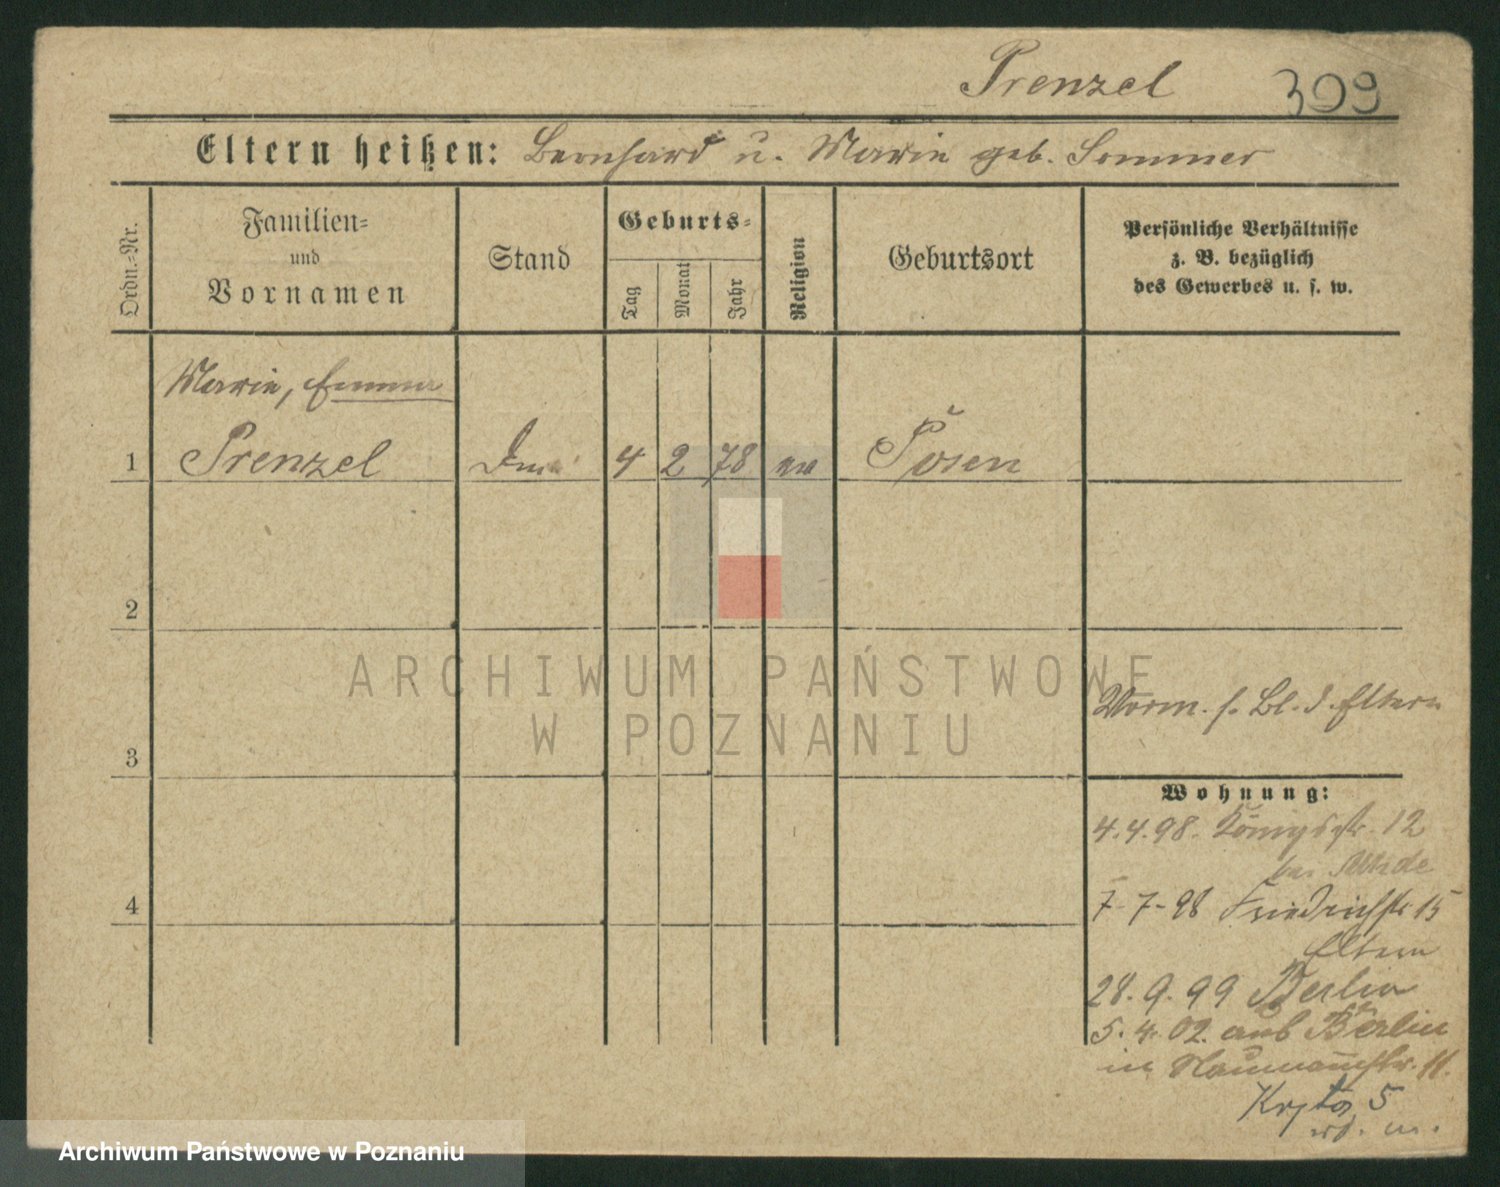 Prenzel 309
Eltern heißen: Bernhard u. Marie geb. Sommer
Ordn.-Nr.
Familien-
und
Vornamen
Stand
Geburts-
Tag
Monat
Jahr
Religion
Geburtsort
Persönliche Verhältnisse
z. B. bezüglich
des Gewerbes u. s. w.
Marie, Emma
1 Prenzel 4 2 78 ev Posen
2
3
Vorm. s. Bl. d. Eltern
Wohnung:
4.4.98. Königsstr. 12
bei
4
7-7-98 Friedrichstr 15
Eltern
28.9.99 Berlin
5.4.02. aus Berlin
in Naumannstr. 11.
5
ARCHIWUM PAŃSTWOWE
W POZNANIU
Archiwum Państwowe w Poznaniu